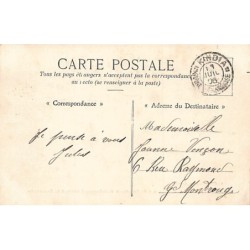 CARTE POSTALE
Tous les pays étrangers n'acceptent pas la correspondance
au recto (se renseigner à la poste)
« Correspondance »
« Adresse du Destinataire »
KINDIA
JUIL
Je pense à vous
Jules
Mademoiselle
Jeanne
6 Rue Raymond
Gd Montrouge